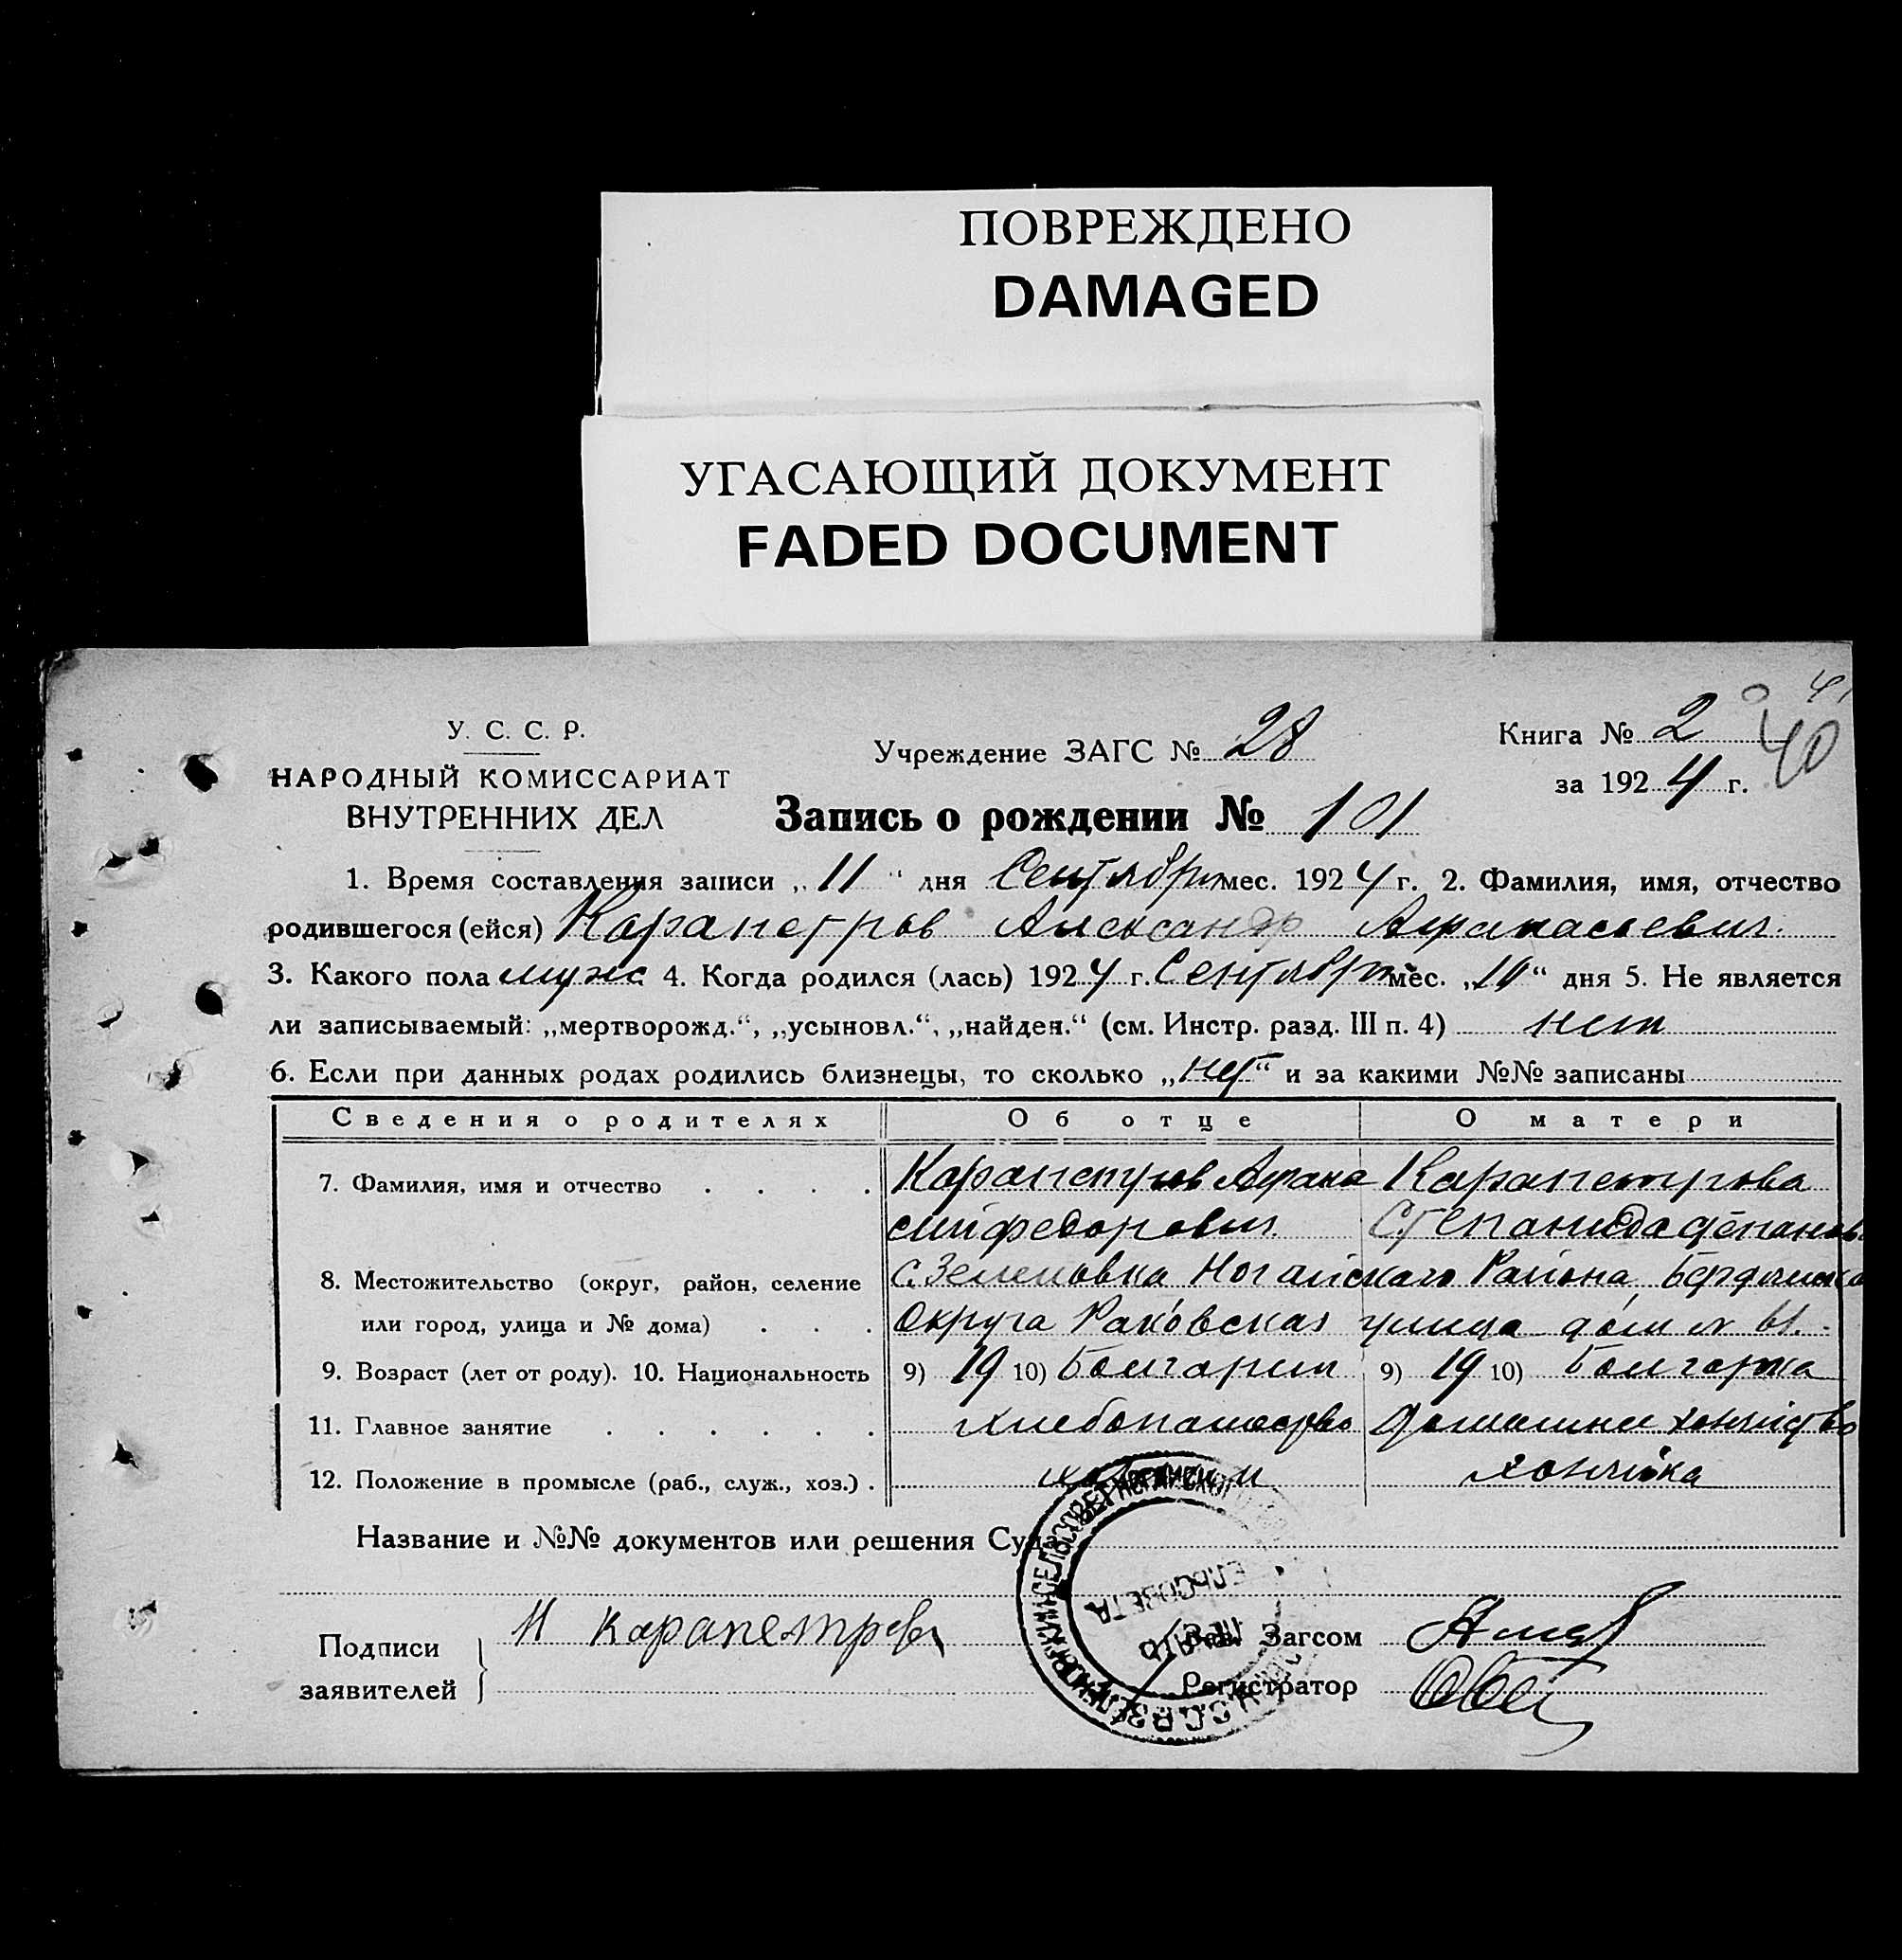 ПОВРЕЖДЕНО
DAMAGED
УГАСАЮЩИЙ ДОКУМЕНТ
FADED DOCUMENT
41
40
У. С. С. Р.
НАРОДНЫЙ КОМИССАРИАТ
ВНУТРЕННИХ ДЕЛ
Учреждение ЗАГС № 28
Книга № 2
за 1924 г.
Запись о рождении № 101
1. Время составления записи „11“ дня Сентября мес. 1924 г. 2. Фамилия, имя, отчество
родившегося (ейся) Карапетров Александр Афанасьевич.
3. Какого пола муж 4. Когда родился (лась) 1924 г. Сентября мес. „10“ дня 5. Не является
ли записываемый: „мертворожд.“, „усыновл.“, „найден.“ (см. Инстр. разд. III п. 4) нет
6. Если при данных родах родились близнецы, то сколько „нет“ и за какими №№ записаны
Сведения о родителях Об отце О матери
7. Фамилия, имя и отчество Карапетров Афана Карапетрова
сий Федорович Степанида
8. Местожительство (округ, район, селение С. Зеленовка Ногайского Района, Бердянска
или город, улица и № дома) Округа Раковская улица дом №
9. Возраст (лет от роду). 10. Национальность 9) 19 10) Болгарин 9) 19 10) Болгарка
11. Главное занятие хлебопашество Домашнее
12. Положение в промысле (раб., служ., хоз.) хозяин хозяйка
Название и №№ документов или решения Суда
Подписи
заявителей
И Карапетров
Зав. Загсом
Регистратор
СЕЛЬСОВЕТА
ПЕЧАТЬ